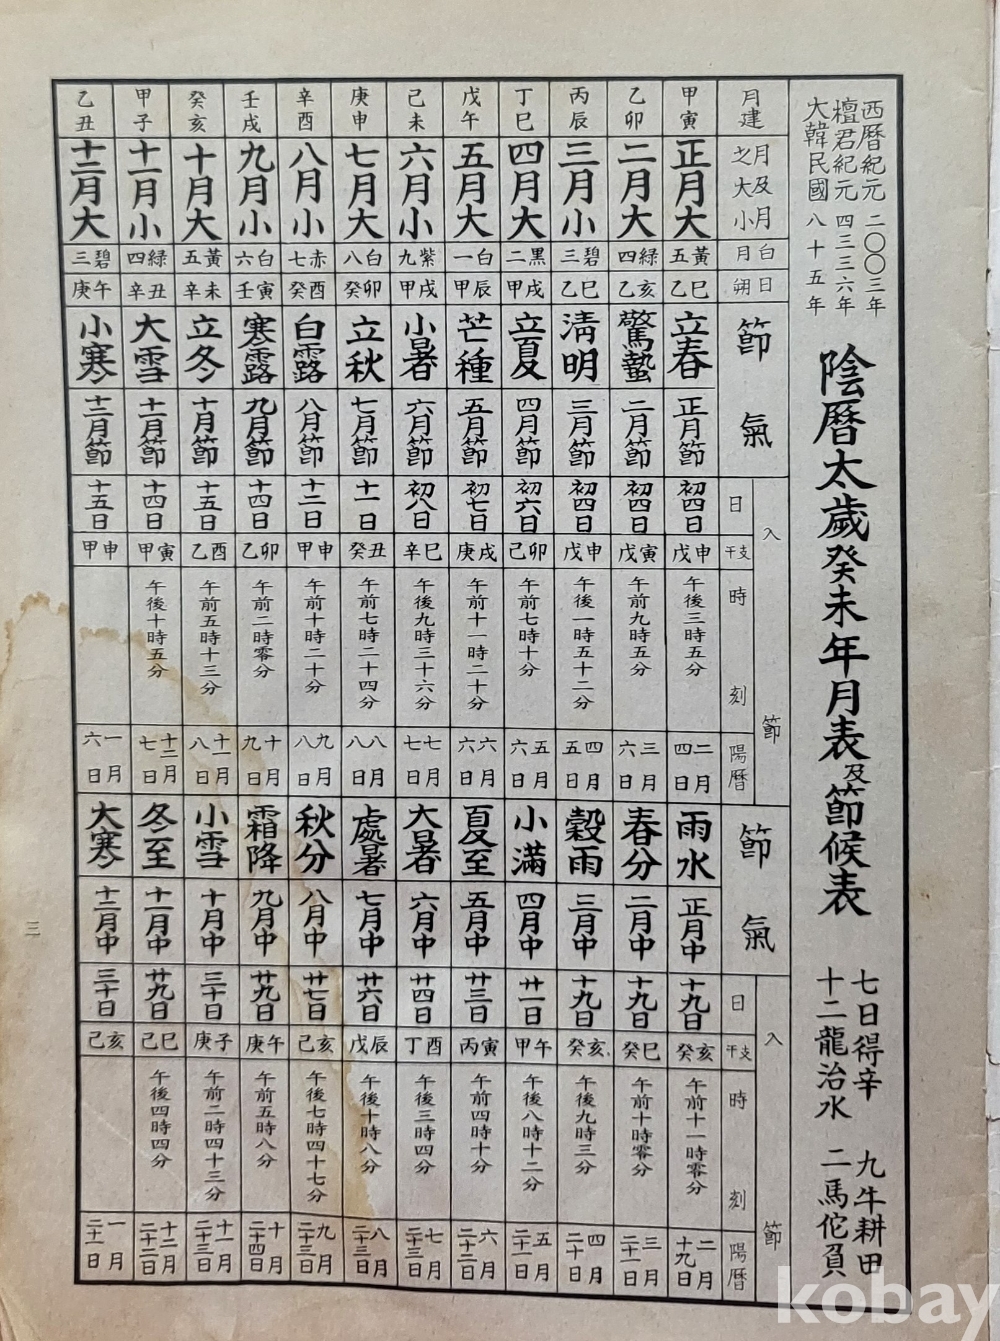 西曆紀元 二〇〇三年
檀君紀元 四三三六年
大韓民國 八十五年
陰曆太歲癸未年月表及節候表
七日得辛 九牛耕田
十二龍治水 二馬佗負
月建
月及月之大小
月白
日朔
節氣
入節
日
干支
時刻
陽曆
節氣
入節
日
干支
時刻
陽曆
甲寅
正月大
五黃
乙巳
立春
正月節
初四日
戊申
午後三時五分
二月四日
雨水
正月中
十九日
癸亥
午前十一時零分
二月十九日
乙卯
二月大
四綠
乙亥
驚蟄
二月節
初四日
戊寅
午前九時五分
三月六日
春分
二月中
十九日
癸巳
午前十時零分
三月二十一日
丙辰
三月小
三碧
乙巳
淸明
三月節
初四日
戊申
午後一時五十二分
四月五日
穀雨
三月中
十九日
癸亥
午後九時三分
四月二十日
丁巳
四月大
二黑
甲戌
立夏
四月節
初六日
己卯
午前七時十分
五月六日
小滿
四月中
廿一日
甲午
午後八時十二分
五月二十一日
戊午
五月大
一白
甲辰
芒種
五月節
初七日
庚戌
午前十一時二十分
六月六日
夏至
五月中
廿三日
丙寅
午前四時十分
六月二十二日
己未
六月小
九紫
甲戌
小暑
六月節
初八日
辛巳
午後九時三十六分
七月七日
大暑
六月中
廿四日
丁酉
午後三時四分
七月二十三日
庚申
七月大
八白
癸卯
立秋
七月節
十一日
癸丑
午前七時二十四分
八月八日
處暑
七月中
廿六日
戊辰
午後十時八分
八月二十三日
辛酉
八月小
七赤
癸酉
白露
八月節
十二日
甲申
午前十時二十分
九月八日
秋分
八月中
廿七日
己亥
午後七時四十七分
九月二十三日
壬戌
九月小
六白
壬寅
寒露
九月節
十四日
乙卯
午前二時零分
十月九日
霜降
九月中
廿九日
庚午
午前五時八分
十月二十四日
癸亥
十月大
五黃
辛未
立冬
十月節
十五日
乙酉
午前五時十三分
十一月八日
小雪
十月中
三十日
庚子
午前二時四十三分
十一月二十三日
甲子
十一月小
四綠
辛丑
大雪
十一月節
十四日
甲寅
午後十時五分
十二月七日
冬至
十一月中
廿九日
己巳
午後四時四分
十二月二十二日
乙丑
十二月大
三碧
庚午
小寒
十二月節
十五日
甲申
一月六日
大寒
十二月中
三十日
己亥
一月二十一日
三
kobay